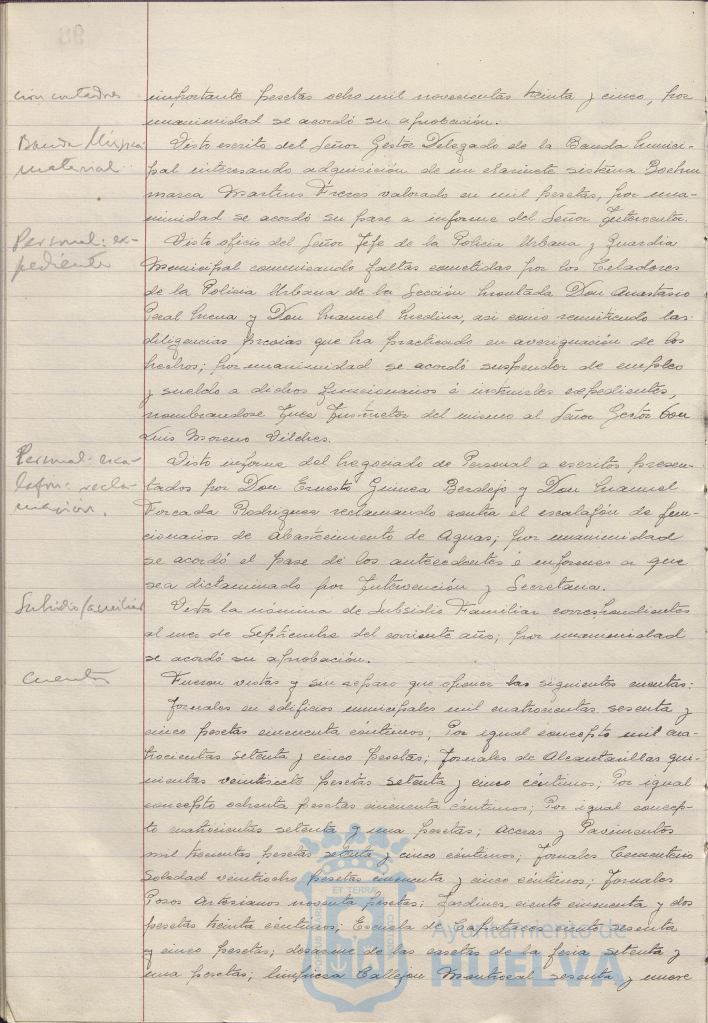 importante pesetas ocho mil novecientas treinta y cinco, por
unanimidad se acordó su aprobación.
Banda Música
material
Visto escrito del Señor Gestor Delegado de la Banda Munici-
pal interesando adquisición de un clarinete sistema Boehm
marca Martins Freres valorado en mil pesetas, por una-
nimidad se acordó su pase a informe del Señor Interventor.
Personal: ex-
pediente
Visto oficio del Señor Jefe de la Policia Urbana y Guardia
Municipal comunicando faltas cometidas por los Celadores
de la Policia Urbana de la Sección Montada Don Anastasio
y Don Manuel Medina, asi como remitiendo las
diligencias previas que ha practicado en averiguación de los
hechos; por unanimidad se acordó suspender de empleo
y sueldo a dichos funcionarios é instruirles expedientes,
nombrandose Juez Instructor del mismo al Señor Gestor Don
Luis Moreno Vilches.
Personal: esca-
lafón: recla-
mación.
Visto informe del Negociado de Personal a escritos presen-
tados por Don Ernesto Guinea Berdejo y Don Manuel
Forcada Rodriguez reclamando contra el escalafón de fun-
cionarios de Abastecimiento de Aguas; por unanimidad
se acordó el pase de los antecedentes é informes a que
sea dictaminado por Intervención y Secretaria.
Subsidio familiar
Vista la nómina de Subsidio Familiar correspondientes
al mes de Septiembre del corriente año; por unanimidad
se acordó su aprobación.
Cuentas
Fueron vistas y sin reparo que oponer las siguientes cuentas:
Jornales en edificios municipales mil cuatrocientas sesenta y
cinco pesetas cincuenta céntimos; Por igual concepto mil cua-
trocientas setenta y cinco pesetas; Jornales de Alcantarillas qui-
nientas veintisiete pesetas setenta y cinco céntimos; Por igual
concepto ochenta pesetas cincuenta céntimos; Por igual concep-
to cuatrocientas setenta y una pesetas; Aceras y Pavimentos
mil trecientas pesetas setenta y cinco céntimos; Jornales Cementerio
Soledad veintiocho pesetas cincuenta y cinco céntimos; Jornales
Pozos Artesianos noventa pesetas; Jardines ciento cincuenta y dos
pesetas treinta céntimos; Escuela de Capataces ciento sesenta
y cinco pesetas; desarme de las casetas de la feria setenta y
una pesetas; limpieza Callejon Montrocal sesenta y nueve
Ayuntamiento de
HUELVA